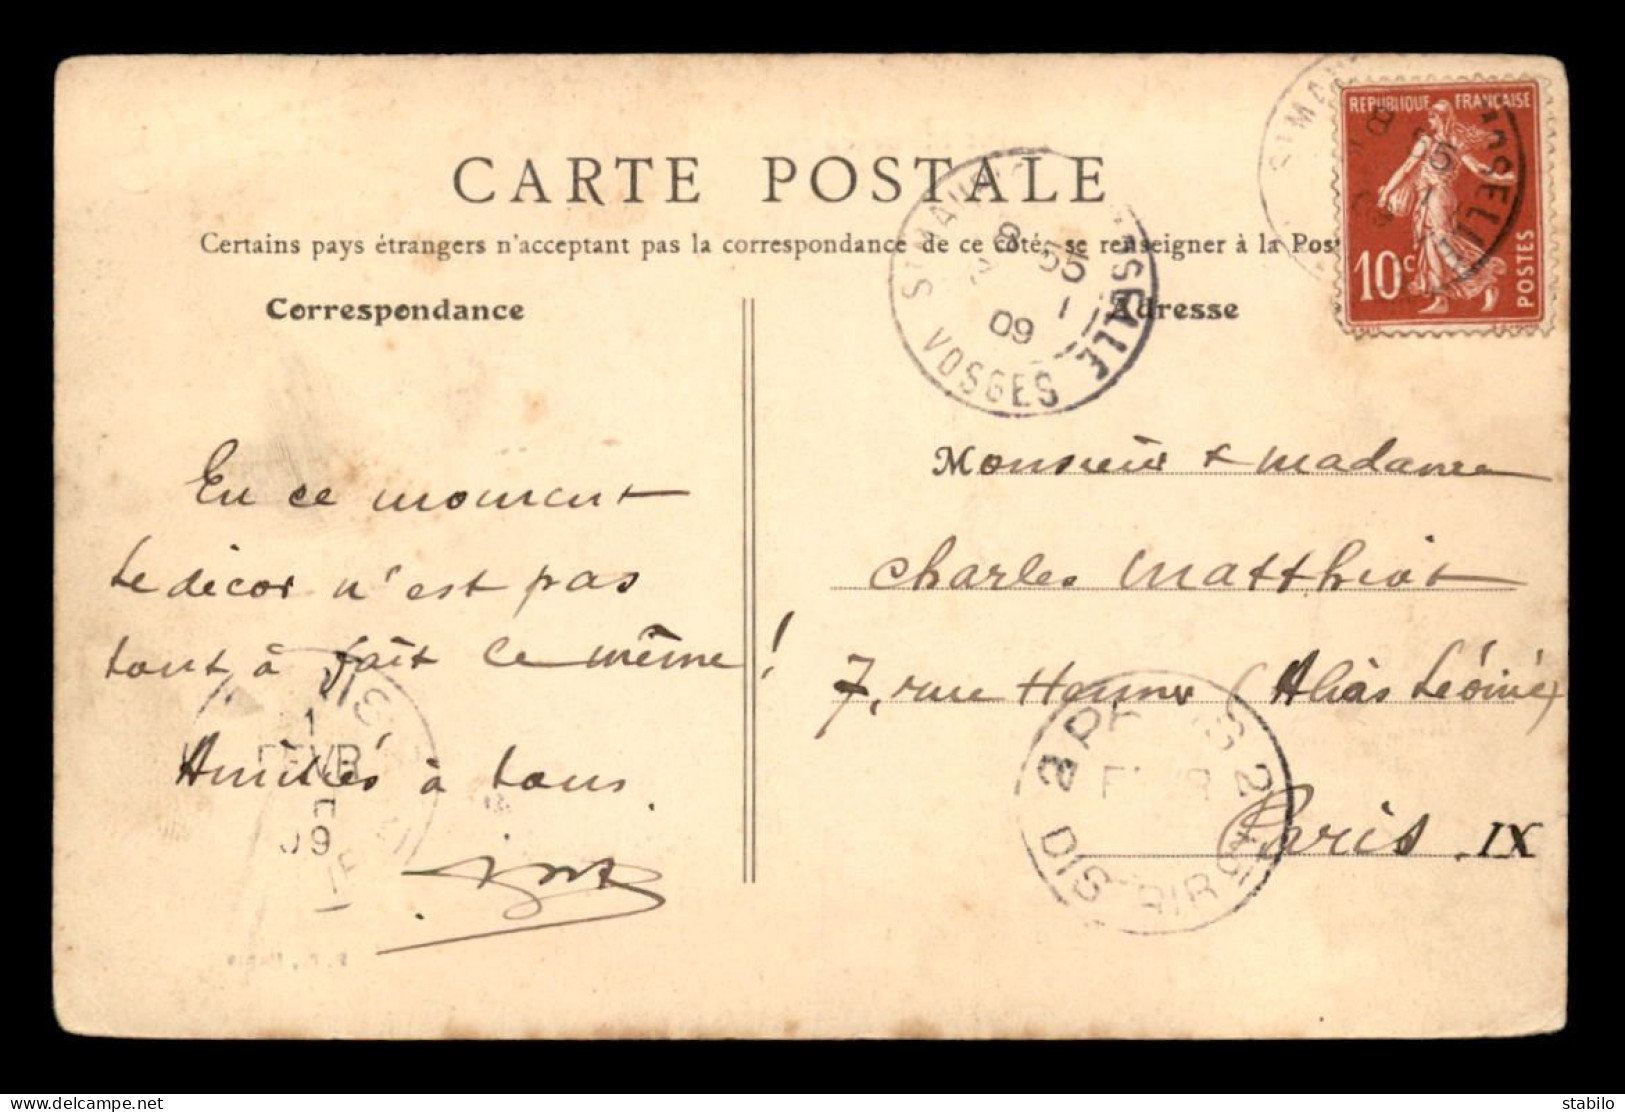 CARTE POSTALE
Certains pays étrangers n'acceptant pas la correspondance de ce côté, se renseigner à la Pos
Correspondance
Adresse
REPUBLIQUE FRANÇAISE
10c
POSTES
VOSGES
09
En ce moment
le décor n'est pas
tout à fait le même !
Amitiés à tous.
Monsieur & Madame
Charles Matthiot
7, rue Henner (Alias Léonie)
Paris IX
1
FEVR
09
DISTRIBUTION
delcampe.net
stabilo